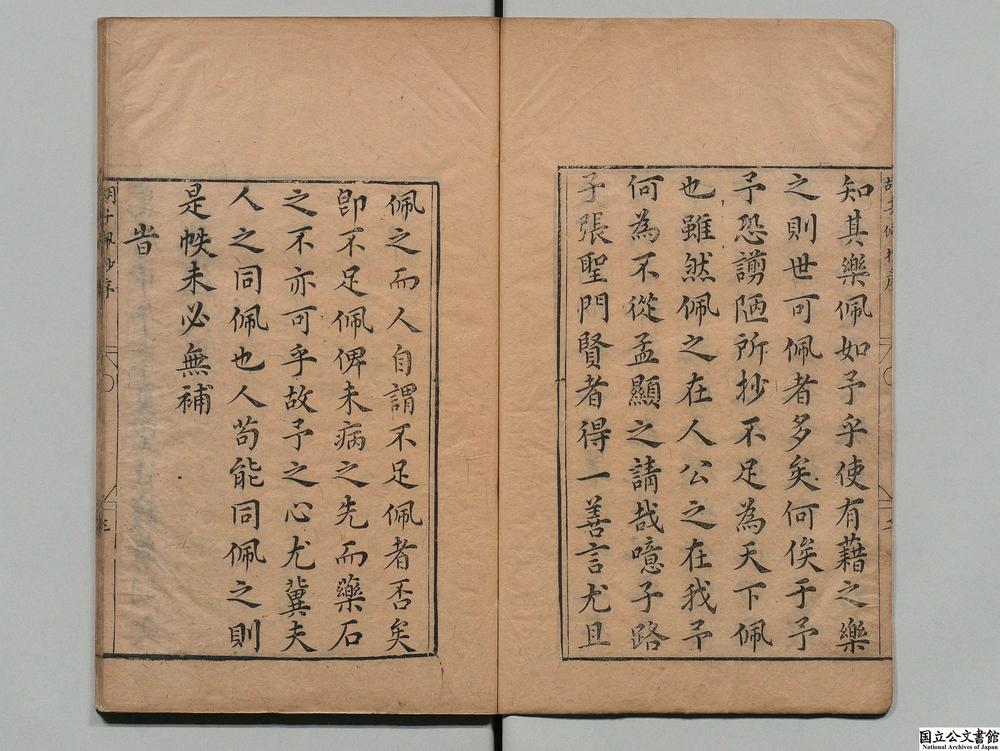 知其樂佩如予乎使有藉之樂
之則世可佩者多矣何俟于予
予恐謭陋所抄不足為天下佩
也雖然佩之在人公之在我予
何為不從孟顯之請哉噫子路
子張聖門賢者得一善言尤且
佩之而人自謂不足佩者否矣
卽不足佩俾未病之先而藥石
之不亦可乎故予之心尤冀夫
人之同佩也人苟能同佩之則
是帙未必無補
旹
胡子佩抄序
三
二
国立公文書館
National Archives of Japan